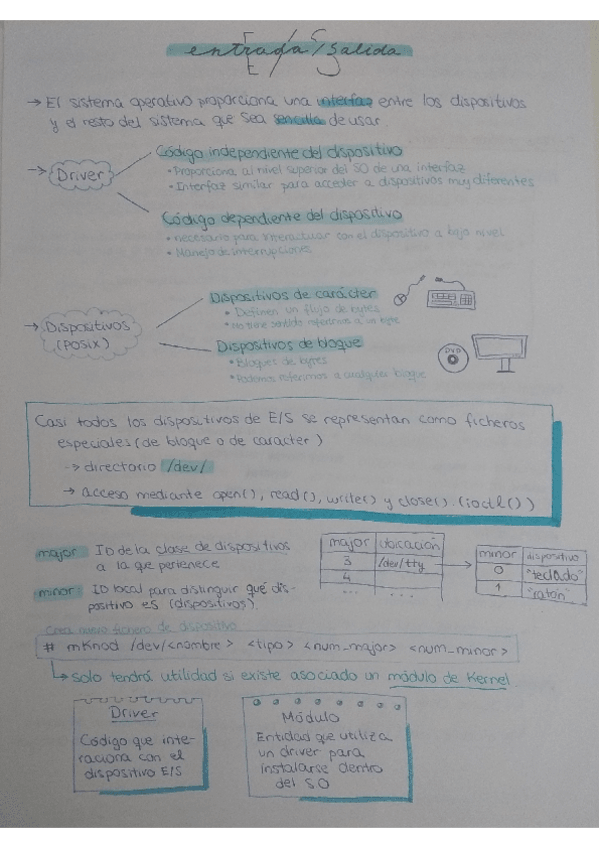 entrada/salida
E/S
→ El sistema operativo proporciona una interfaz entre los dispositivos
y el resto del sistema que sea sencilla de usar.
→ Driver
Código independiente del dispositivo
• Proporciona al nivel superior del SO de una interfaz
• Interfaz similar para acceder a dispositivos muy diferentes
Código dependiente del dispositivo
• necesario para interactuar con el dispositivo a bajo nivel
• Manejo de interrupciones
→ Dispositivos
(POSIX)
Dispositivos de carácter
• Definen un flujo de bytes
• No tiene sentido referirnos a un byte
Dispositivos de bloque
• Bloques de bytes
• Podemos referirnos a cualquier bloque
DVD
Casi todos los dispositivos de E/S se representan como ficheros
especiales (de bloque o de caracter)
→ directorio /dev/
→ acceso mediante open(), read(), write() y close(). (ioctl())
major: ID de la clase de dispositivos
a la que pertenece
minor: ID local para distinguir qué dis-
positivo es (dispositivos).
major ubicación
3 /dev/tty
4
... ...
minor dispositivo
0 "teclado"
1 "ratón"
Crea nuevo fichero de dispositivo
# mknod /dev/<nombre> <tipo> <num_major> <num_minor>
→ solo tendrá utilidad si existe asociado un módulo de Kernel
Driver
Código que inte-
racciona con el
dispositivo E/S
Módulo
Entidad que utiliza
un driver para
instalarse dentro
del S.O